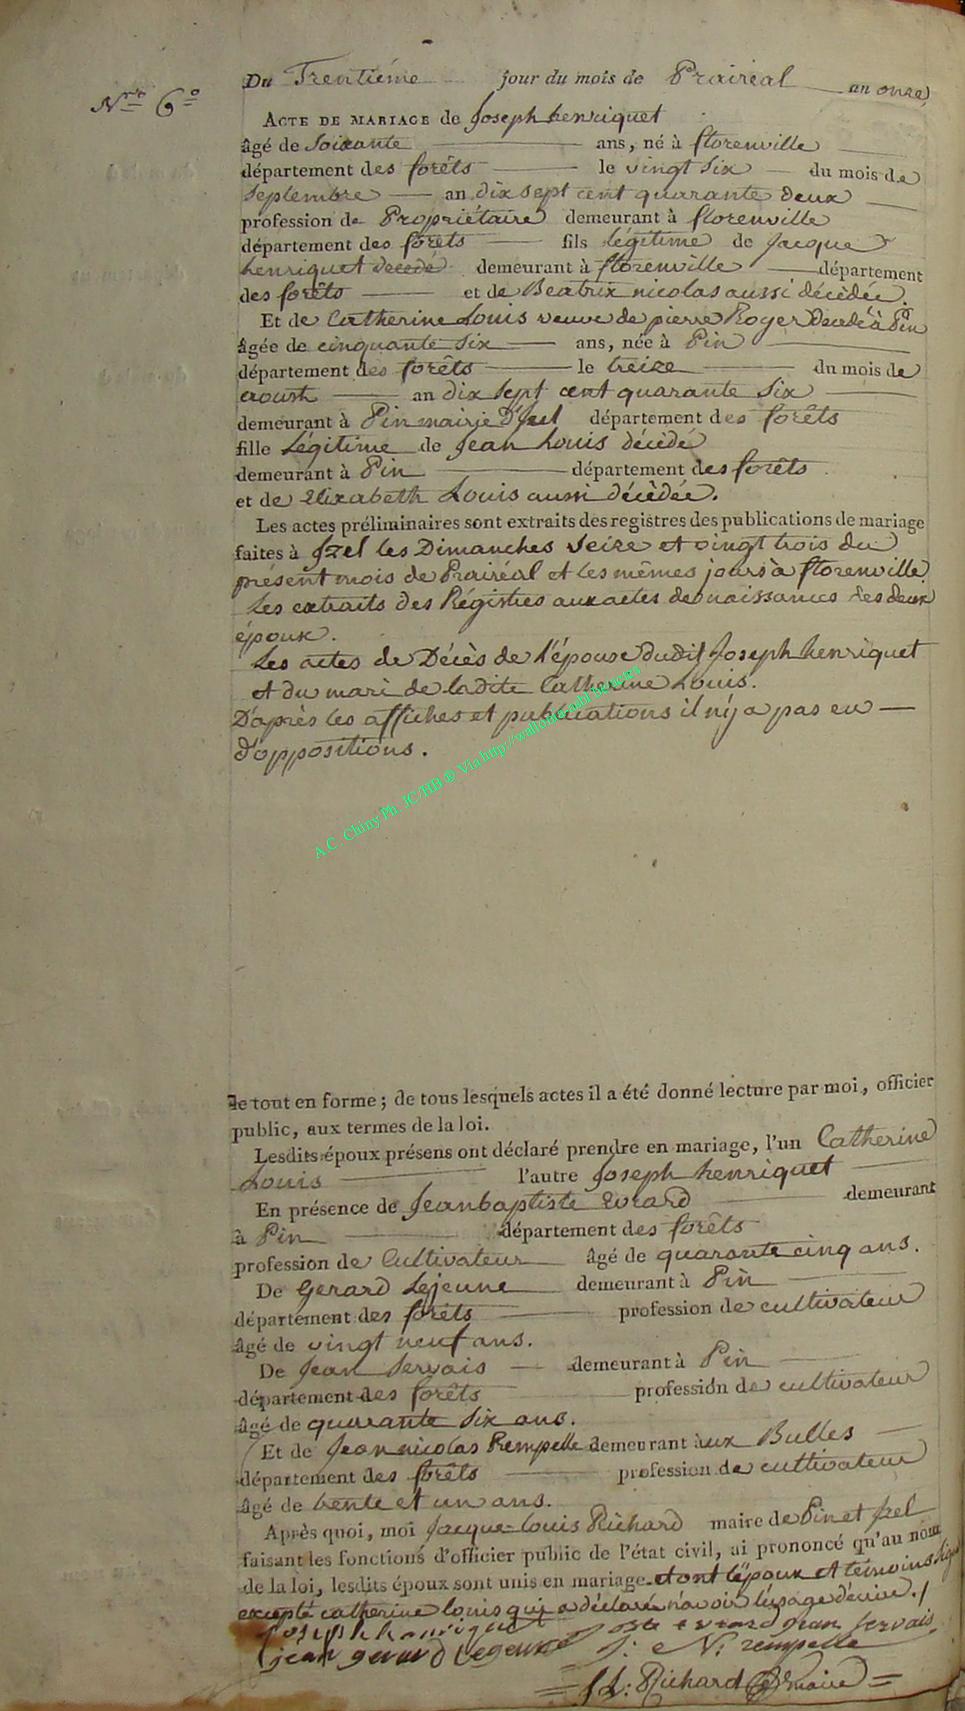 Nro 6o
Du Trentiéme jour du mois de Prairéal an onze,
ACTE DE MARIAGE de Joseph henriquet
âgé de soixante ans, né à florenville
département des forêts le vingt six du mois de
septembre an dix sept cent quarante deux
profession de Propriétaire demeurant à florenville
département des forêts fils légitime de Jacque
henriquet décédé demeurant à florenville département
des forêts et de Beatrix nicolas aussi décédée.
Et de Catherine Louis veuve de pierre Roger Decedé à Pin
âgée de cinquante six ans, née à Pin
département des forêts le treize du mois de
aoust an dix sept cent quarante six
demeurant à Pin mairie D'Izel département des forêts
fille Légitime de Jean Louis décédé
demeurant à Pin département des forêts
et de Elizabeth Louis aussi décédée.
Les actes préliminaires sont extraits des registres des publications de mariage
faites à Izel les Dimanches seize et vingt trois du
présent mois de Prairéal et les mêmes jours à florenville
Les extraits des Régistres aux actes de naissances des deux
époux.
Les actes de Décès de l'épouse dudit Joseph henriquet
et du mari de ladite Catherine Louis.
D'après les affiches et publications il n'y a pas eu
d'oppositions.
A.C. Chiny Ph. JC/HB @ Via http://wallonie.
le tout en forme ; de tous lesquels actes il a été donné lecture par moi, officier
public, aux termes de la loi.
Lesdits époux présens ont déclaré prendre en mariage, l'un Catherine
Louis l'autre Joseph henriquet
En présence de Jean baptiste Evrard demeurant
à Pin département des forêts
profession de Cultivateur âgé de quarante cinq ans.
De Gerard Lejeune demeurant à Pin
département des forêts profession de cultivateur
âgé de vingt neuf ans.
De Jean Servais demeurant à Pin
département des forêts profession de cultivateur
âgé de quarante six ans.
Et de Jean nicolas Rempelle demeurant àux Bulles
département des forêts profession de cultivateur
âgé de trente et un ans.
Après quoi, moi Jacque Louis Richard maire de Pin et Izel
faisant les fonctions d'officier public de l'état civil, ai prononcé qu'au nom
de la loi, lesdits époux sont unis en mariage et ont l'époux et témoins signé
excepté catherine louis qui a déclaré navoir l'usage décrire./
Joseph henriquet evrard jean servais
jean gerard Legeune J: N: rempelle
J L: Richard maire